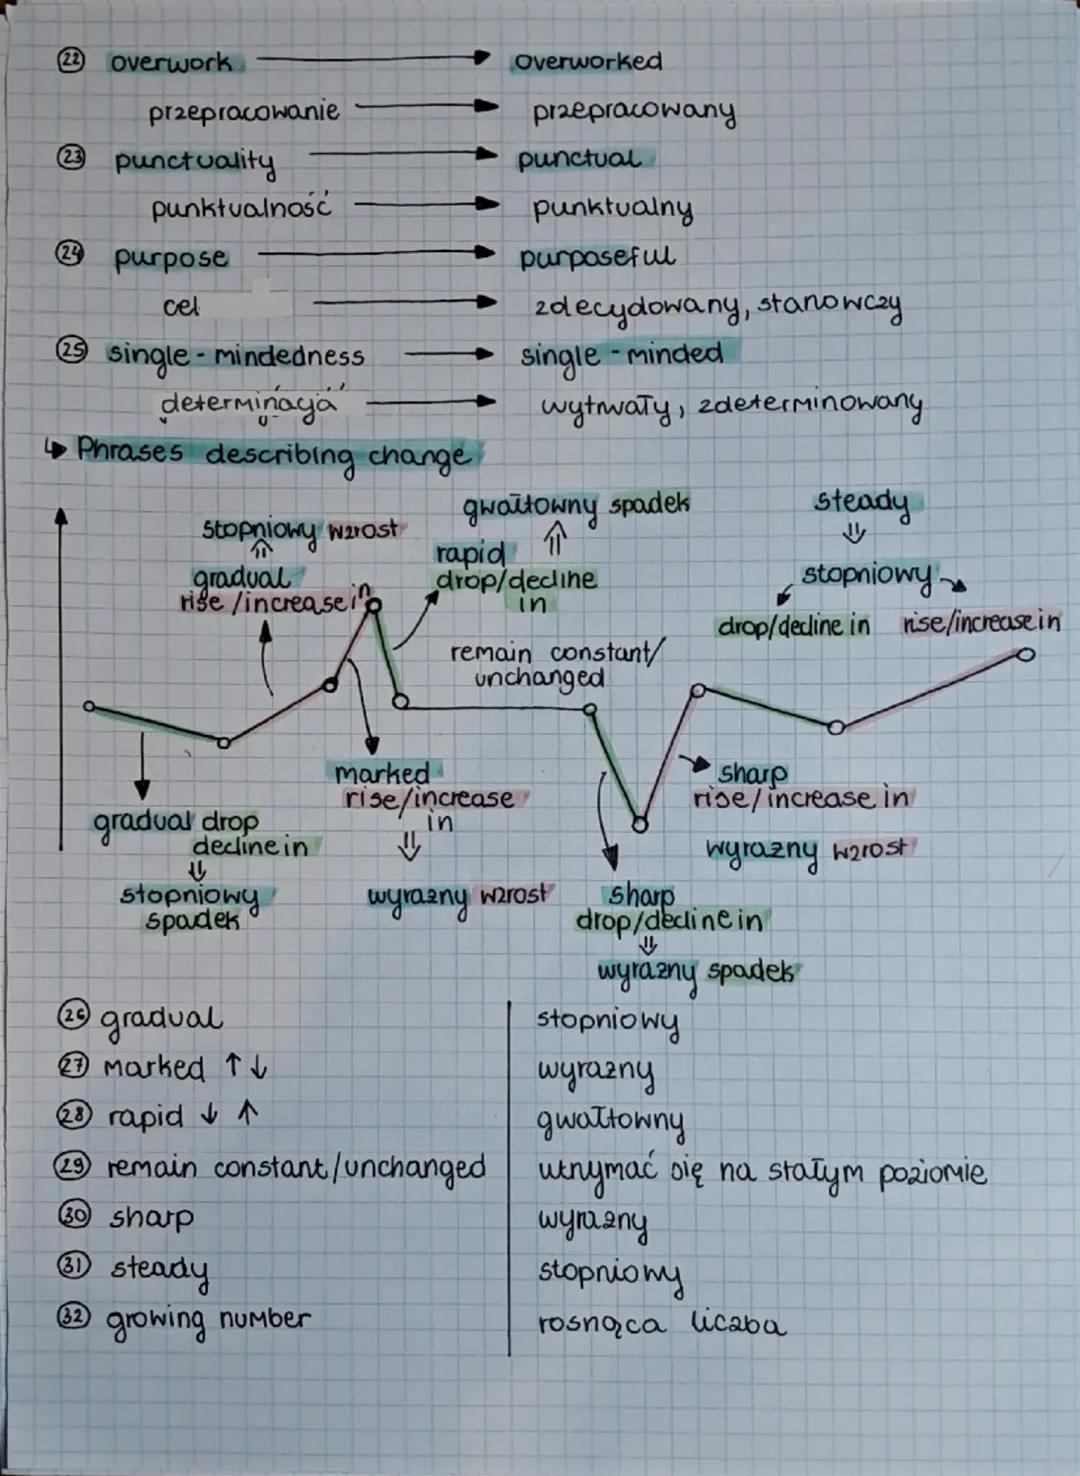 22 overwork → overworked
przepracowanie → przepracowany
23 punctuality → punctual
punktualność → punktualny
24 purpose → purposeful
cel → zdecydowany, stanowczy
25 single-mindedness → single-minded
determinacja → wytrwały, zdeterminowany
↳ Phrases describing change
gwałtowny spadek
steady
stopniowy wzrost
⇑
⇑
⇓
rapid
drop/decline
in
gradual
rise/increase in
stopniowy
drop/decline in
rise/increase in
remain constant/
unchanged
marked
rise/increase
in
⇓
wyrazny wzrost
sharp
rise/increase in
wyrazny wzrost
gradual drop
decline in
⇓
stopniowy
spadek
sharp
drop/decline in
⇓
wyrazny spadek
26 gradual | stopniowy
27 marked ↑↓ | wyrazny
28 rapid ↓ ↑ | gwałtowny
29 remain constant/unchanged | utrzymać się na stałym poziomie
30 sharp | wyrazny
31 steady | stopniowy
32 growing number | rosnąca liczba